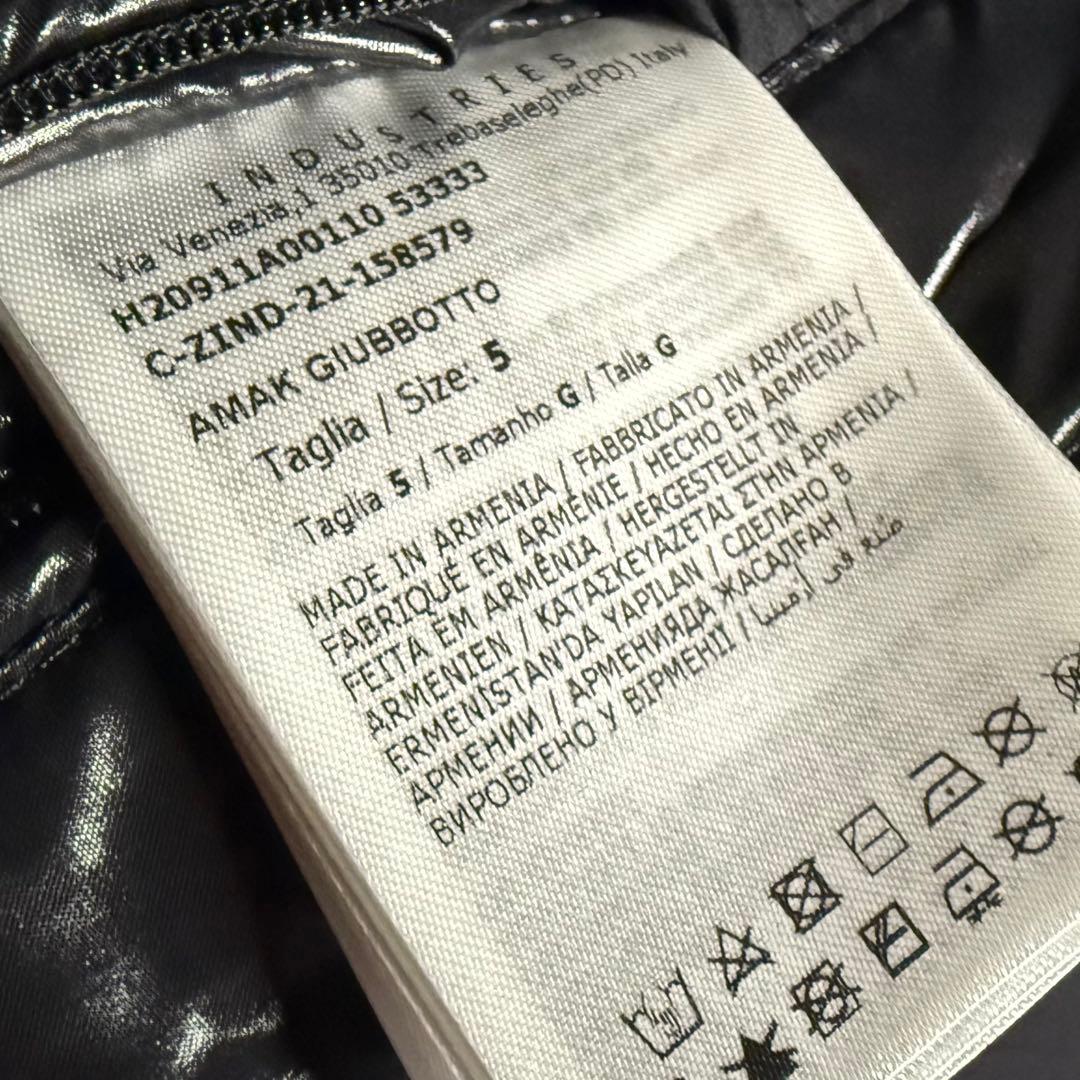 INDUSTRIES
Via Venezia,1 35010 Trebaseleghe(PD) Italy
H20911A00110 53333
C-ZIND-21-158579
AMAK GIUBBOTTO
Taglia / Size: 5
Taglia 5 / Tamanho G / Talla G
MADE IN ARMENIA / FABBRICATO IN ARMENIA /
FABRIQUÉ EN ARMÉNIE / HECHO EN ARMENIA /
FEITA EM ARMÊNIA / HERGESTELLT IN
ARMENIEN / ΚΑΤΑΣΚΕΥΑΖΕΤΑΙ ΣΤΗΝ ΑΡΜΕΝΙΑ /
ERMENİSTAN'DA YAPILAN / СДЕЛАНО В
АРМЕНИИ / АРМЕНИЯДА ЖАСАЛҒАН /
ВИРОБЛЕНО У ВІРМЕНІЇ / صنع في أرمينيا